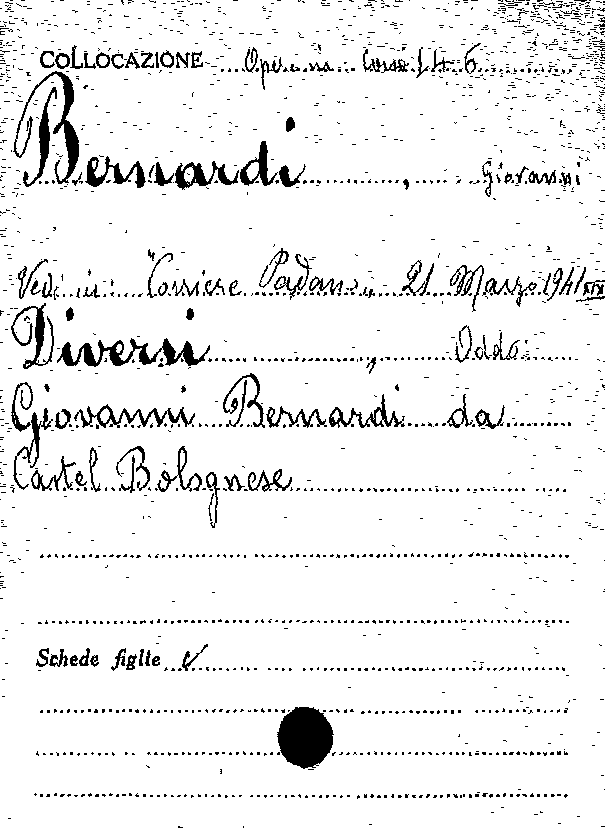 COLLOCAZIONE Opera in 146
Bernardi, Giovanni
Vedi in: "Corriere Padano" 21 Marzo 1941 XIX
Diversi, Oddo:
Giovanni Bernardi da
Castel Bolognese
Schede figlie